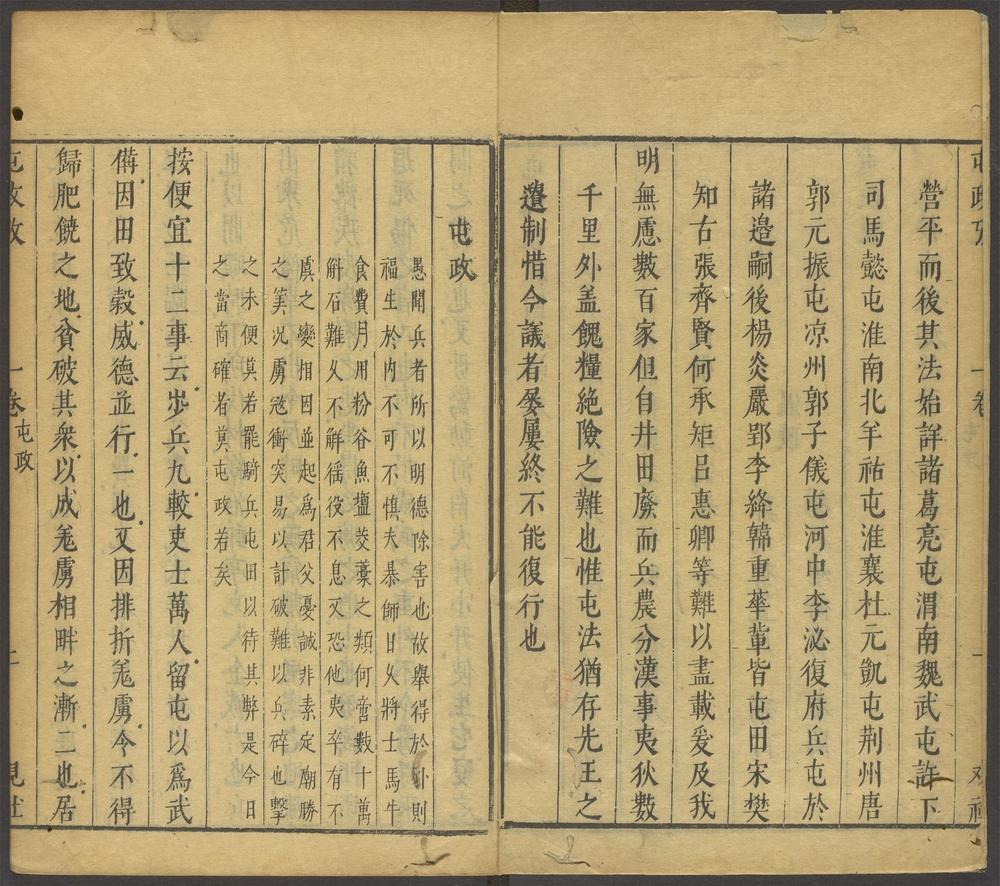 營平而後其法始詳諸葛亮屯渭南魏武屯許下
司馬懿屯淮南北羊祜屯淮襄杜元凱屯荆州唐
郭元振屯凉州郭子儀屯河中李泌復府兵屯於
諸邉嗣後楊炎嚴郢李絳韓重華軰皆屯田宋樊
知古張齊賢何承矩吕惠卿等難以盡載爰及我
明無慮數百家但自井田廢而兵農分漢事夷狄數
千里外盖餽糧絶險之難也惟屯法猶存先王之
遺制惜今議者屢屢終不能復行也
屯政
愚聞兵者所以明德除害也故舉得於外則
福生於内不可不慎夫暴師日久將士馬牛
食費月用粉谷魚鹽茭藁之類何啻數十萬
斛石難久不觧徭役不息又恐他夷卒有不
虞之變相因並起爲君父憂誠非素定廟勝
之筭况虜宼衝突易以計破難以兵碎也擊
之未便莫若罷騎兵屯田以待其弊是今日
之當商確者莫屯政若矣
按便宜十二事云步兵九較吏士萬人留屯以爲武
備因田致榖威德並行一也又因排折羌虜令不得
歸肥饒之地貧破其衆以成羌虜相畔之漸二也居
屯政攷
一卷屯政
二